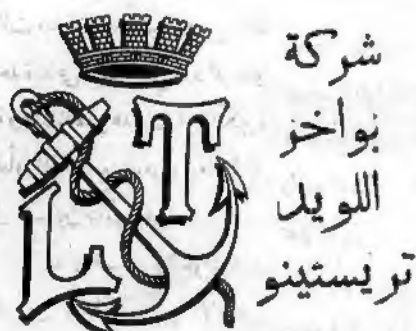 شركة
بواخر
اللويد
تريستينو
L T